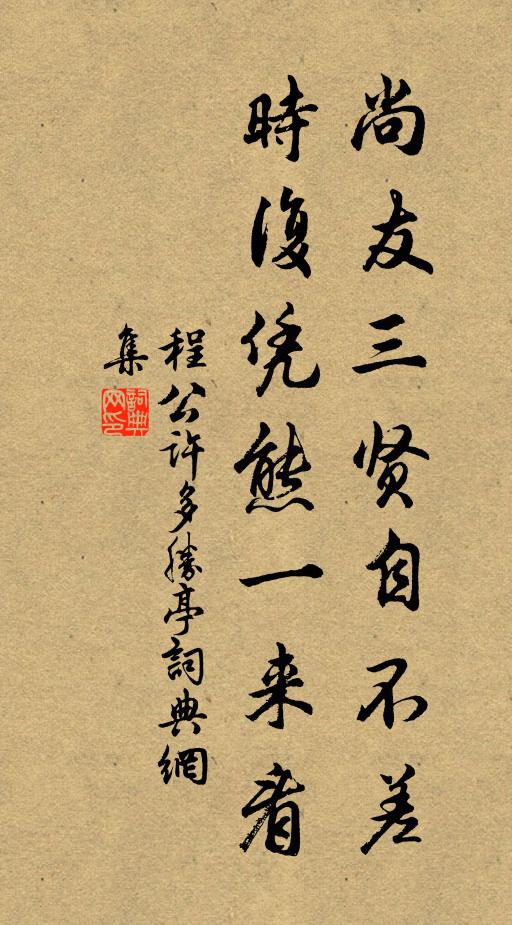 尚友三贤自不差
時復凭熊一来看
程公许多勝亭詞典網
集
詞典
网印